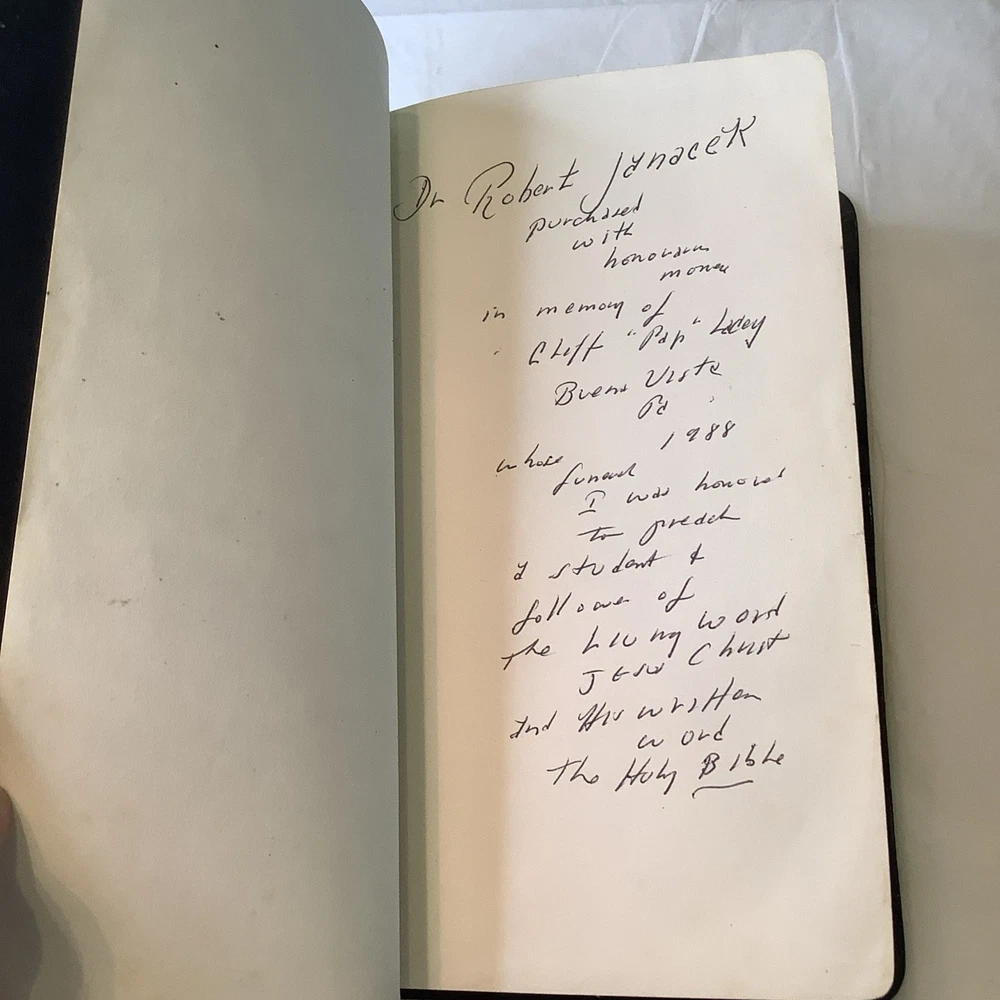 Dr Robert Janacek
purchased
with
honorarium
money
in memory of
Cliff "Pap" Lacey
Buena Vista
Pa
1988
whose
funeral
I was honored
to preach
a student &
follower of
the Living Word
Jesus Christ
and His written
word
The Holy Bible